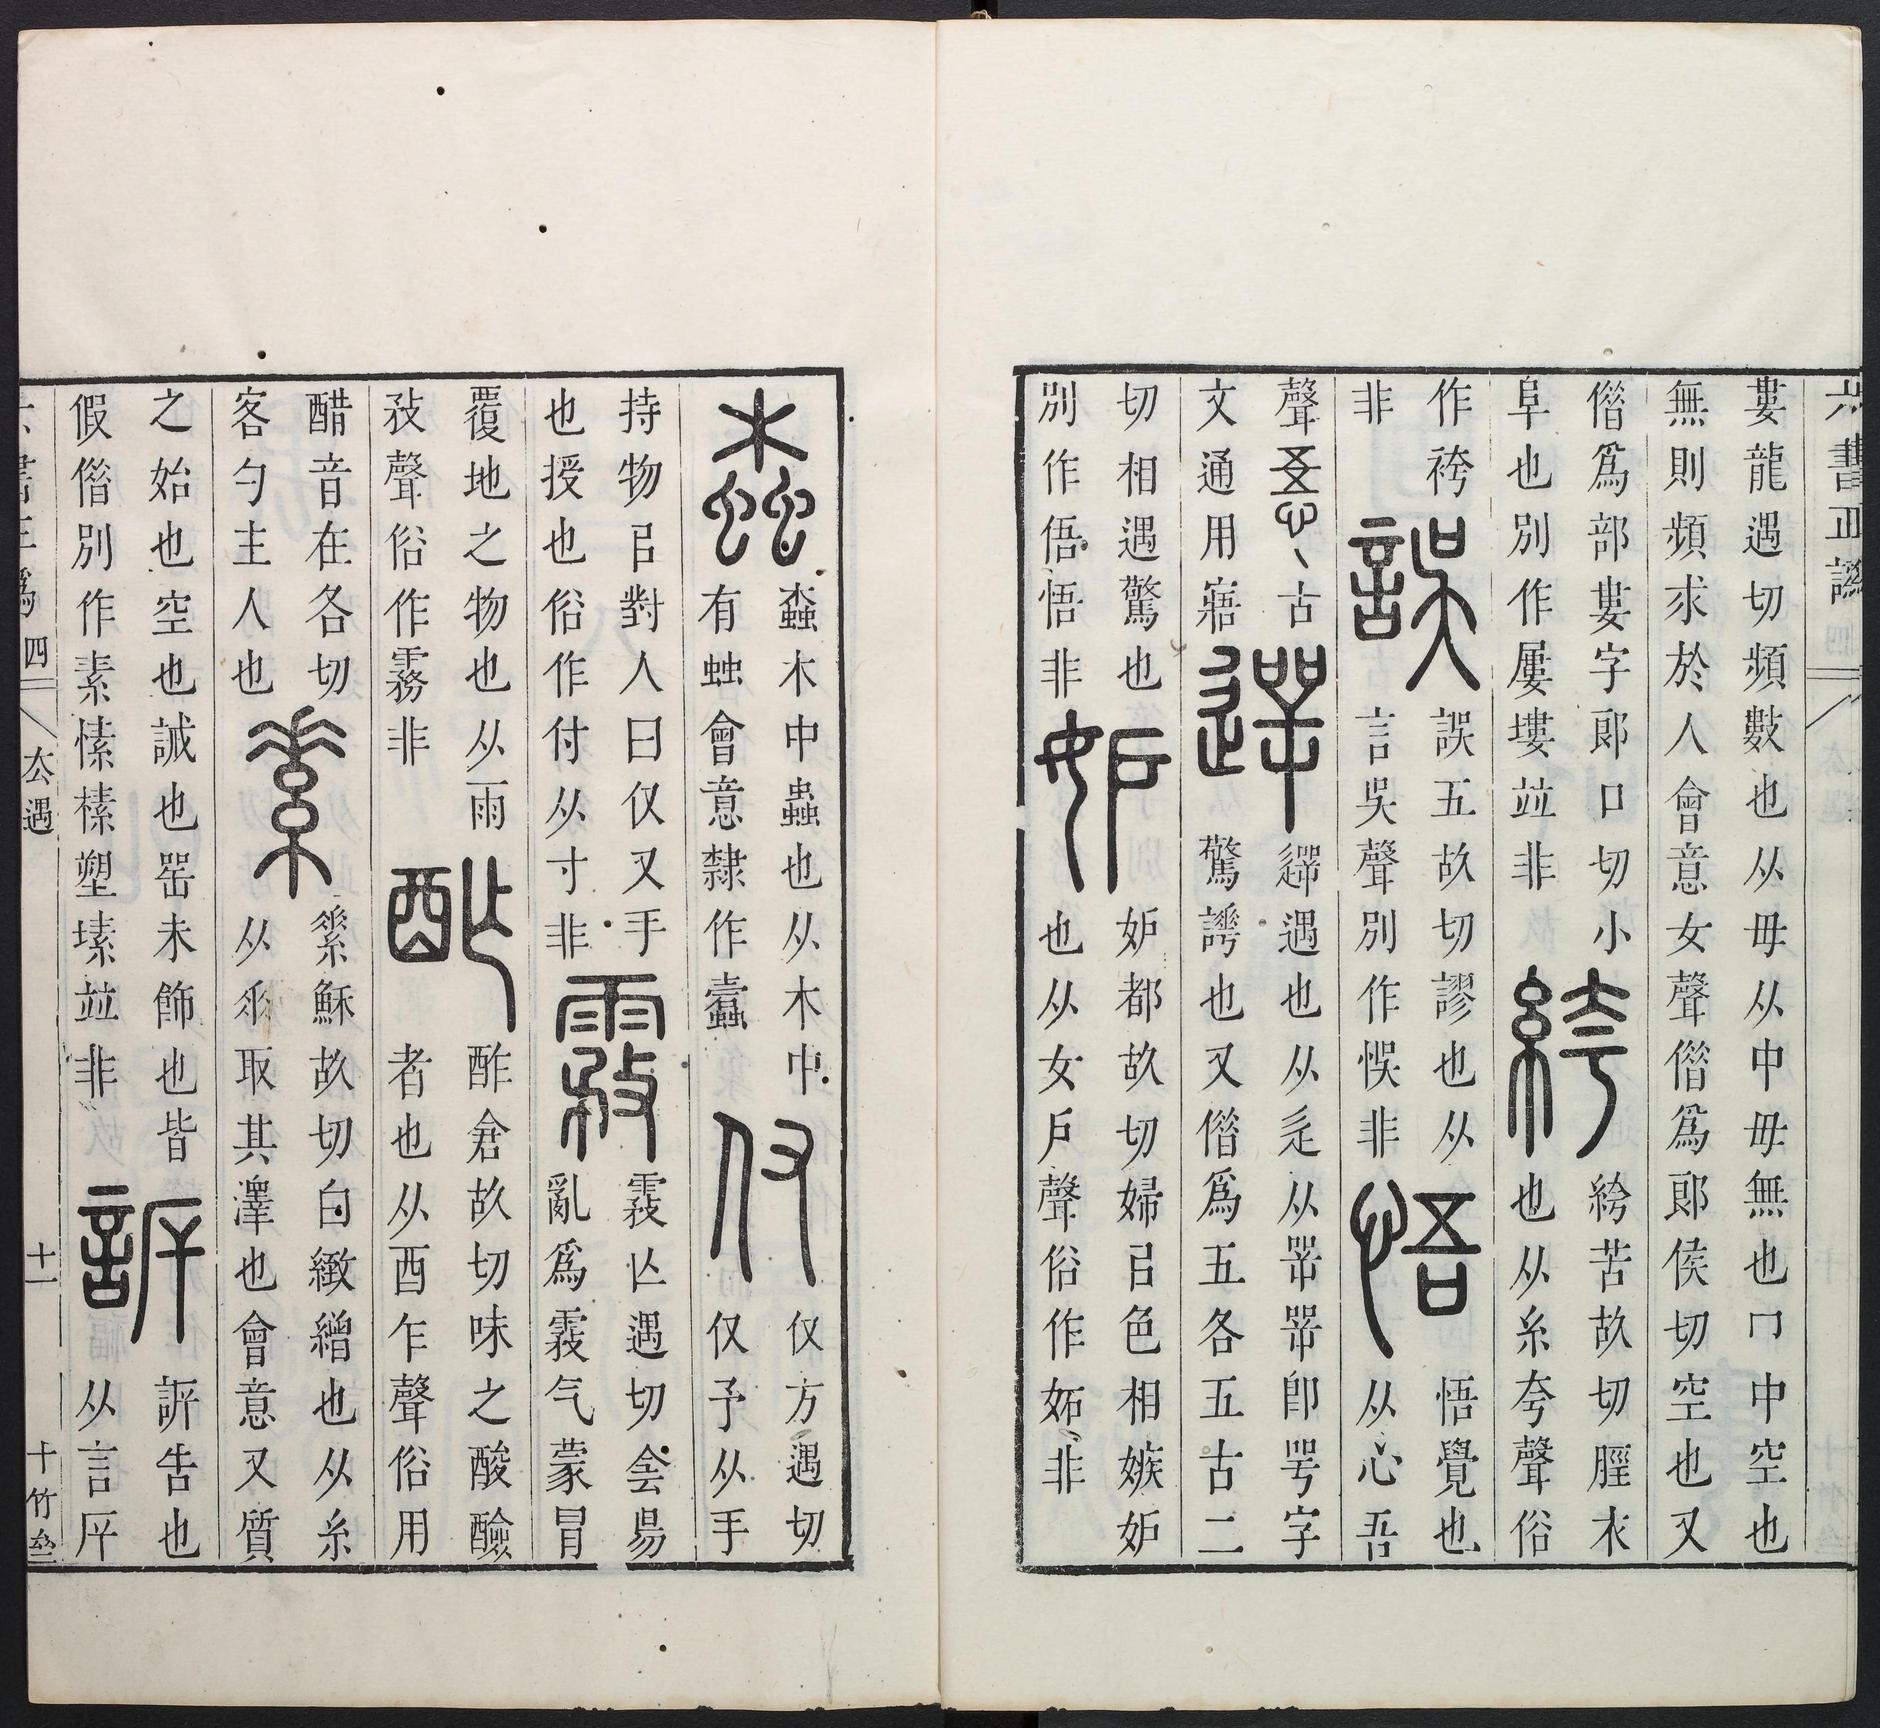 六書正譌
婁龍遇切頻數也从毋从中毋無也冂中空也
無則頻求於人會意女聲偕爲郞侯切空也又
偕爲部婁字郞口切小
阜也別作屢塿竝非
絝
絝苦故切脛衣
也从糸夸聲俗
作袴
非
誤
誤五故切謬也从
言吳聲別作悞非
悟
悟覺也
从心吾
聲㐏古
文通用寤
遻
遻遇也从辵从㖾㖾卽咢字
驚諤也又偕爲五各五古二
切相遇驚也
別作俉悟非
妒
妒都故切婦㠯色相嫉妒
也从女戶聲俗作妬非
螙
螙木中蟲也从木中
有䖵會意隸作蠹
仅
仅方遇切
仅予从手
持物㠯對人曰仅又手
也授也俗作付从寸非
霚
霚亾遇切侌昜
亂爲霚气蒙冒
覆地之物也从雨
敄聲俗作霧非
酢
酢倉故切味之酸醶
者也从酉乍聲俗用
醋音在各切
客勺主人也
素
縤穌故切白緻繒也从糸
从𠂹取其澤也會意又質
之始也空也誡也未飾也皆
假偕別作素愫榡塑塐竝非
訴
訴告也
从言㡿
六書正譌 四 厺遇 十一 十竹